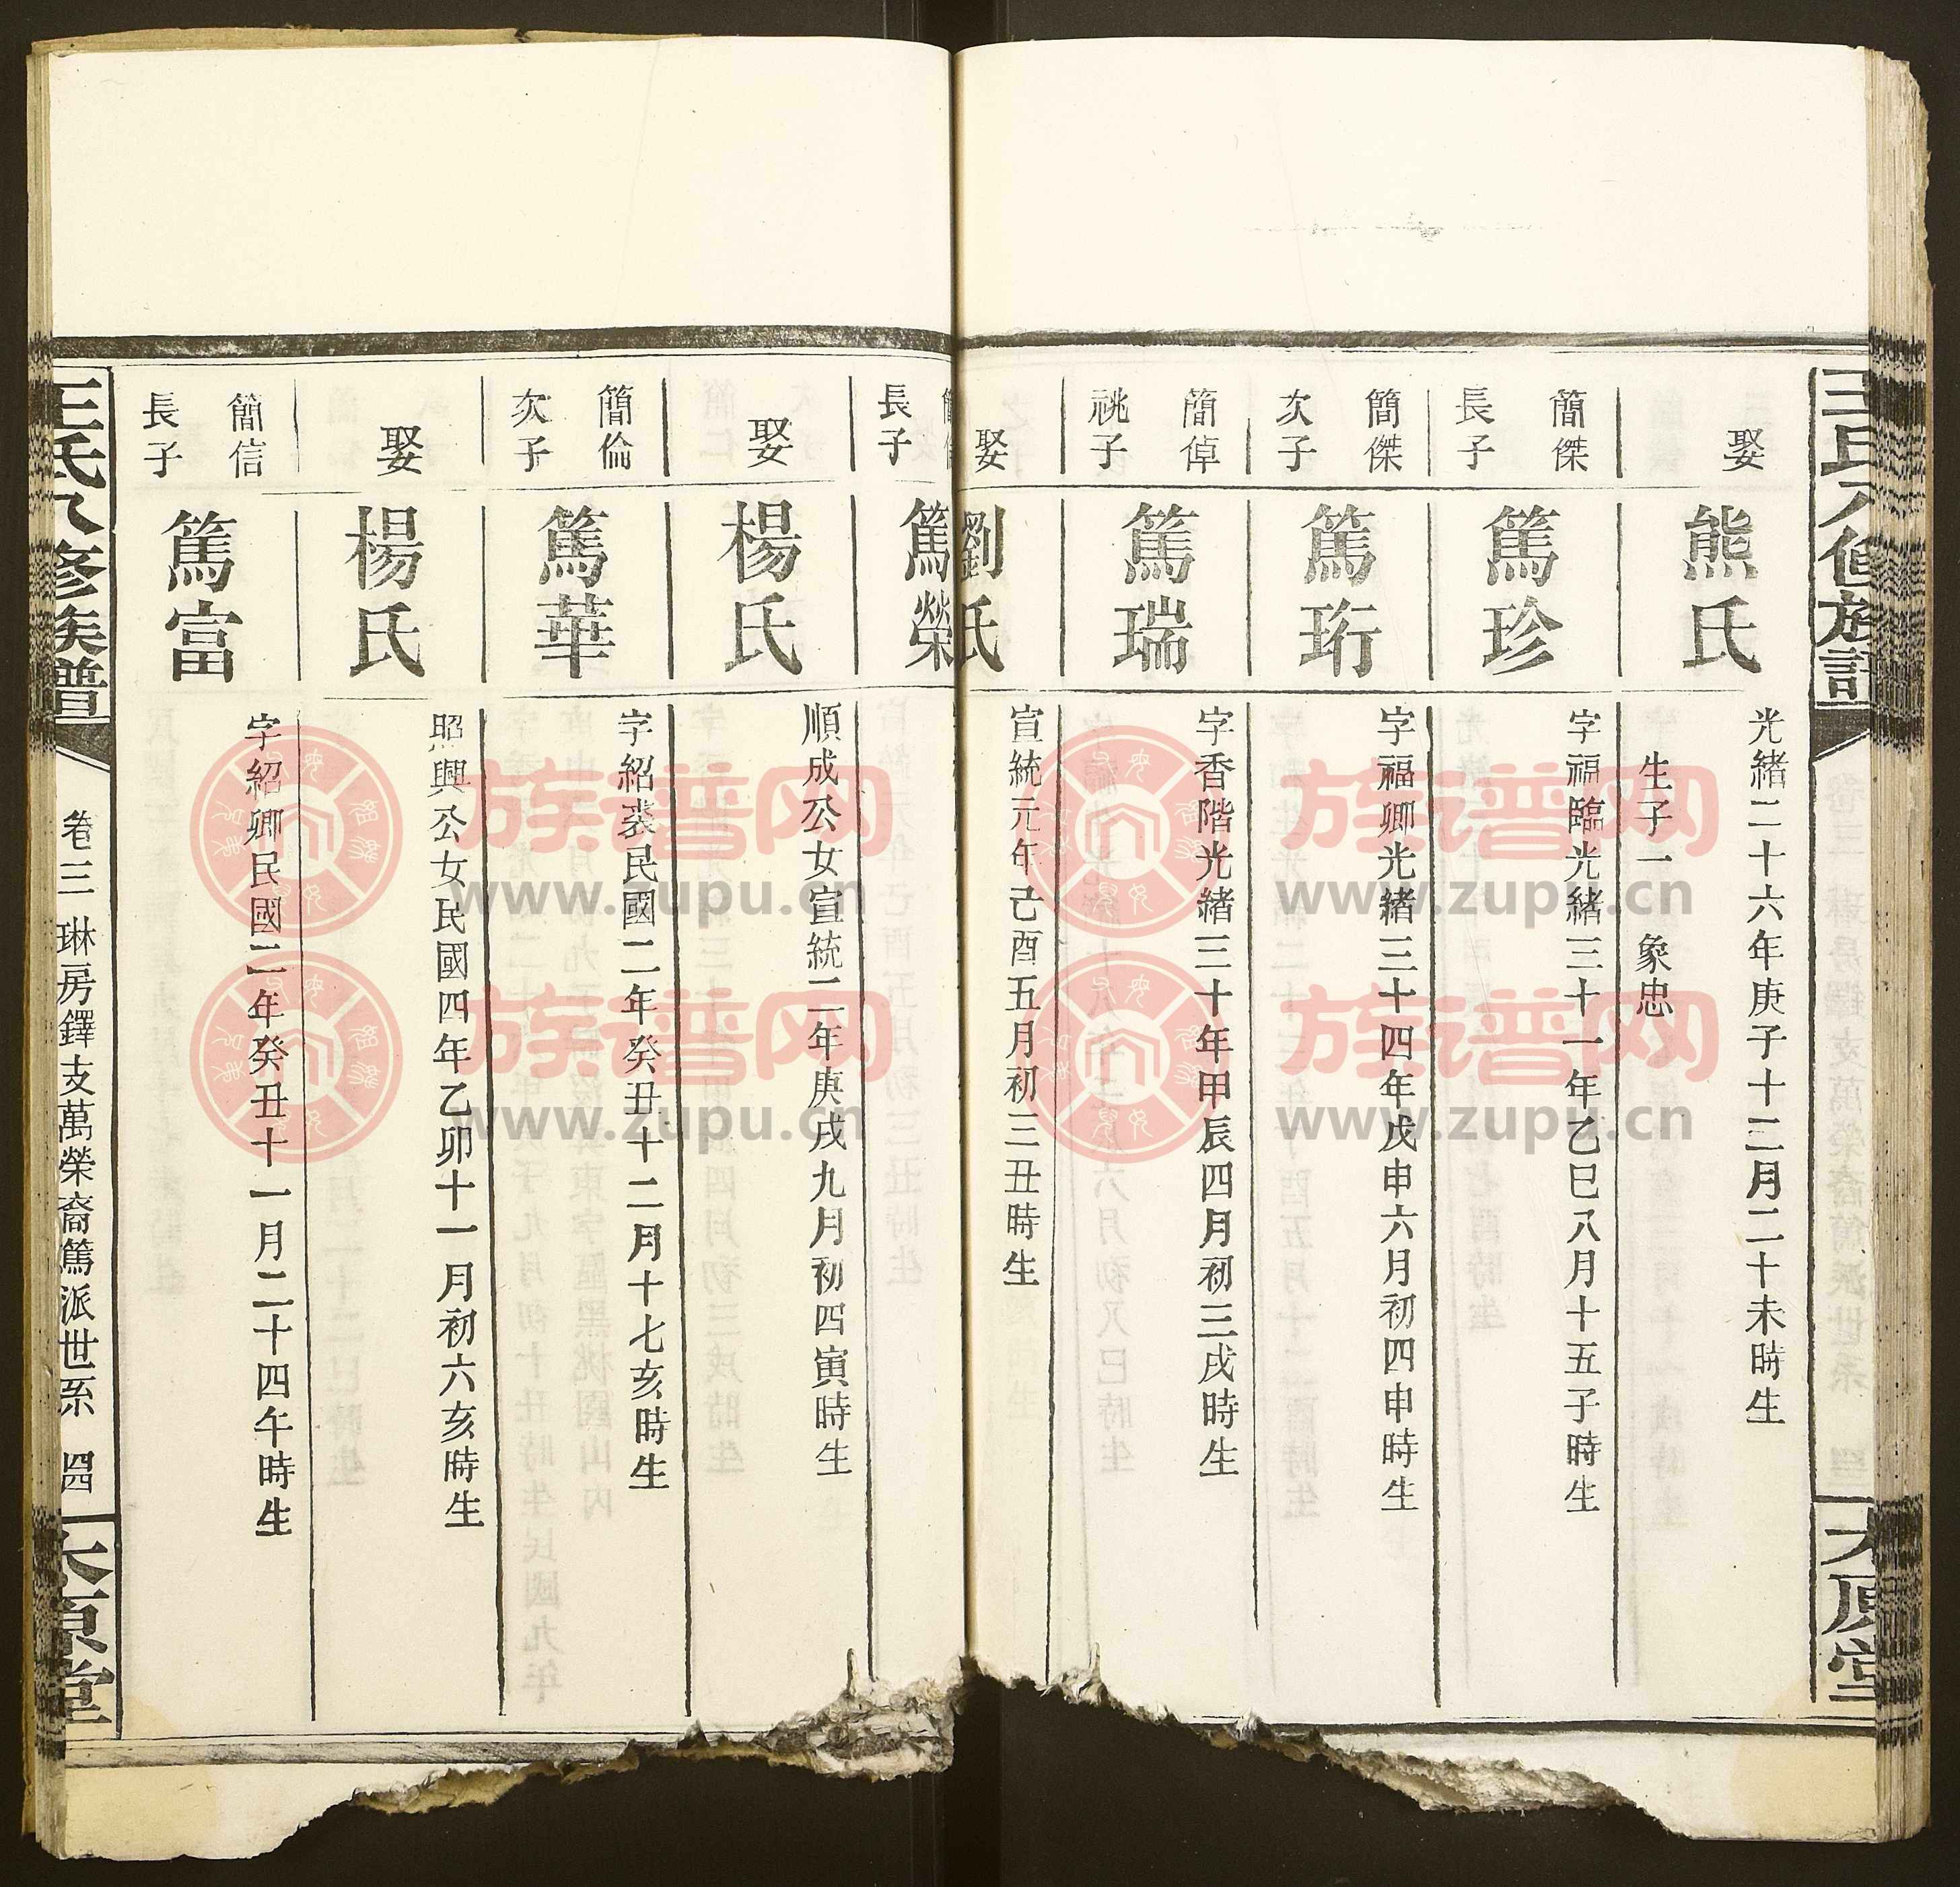 王氏八修族譜
太原堂
娶
熊氏
光緒二十六年庚子十二月二十未時生
生子一 象忠
簡傑
長子
篤珍
字福臨光緒三十一年乙巳八月十五子時生
簡傑
次子
篤珩
字福卿光緒三十四年戊申六月初四申時生
簡倬
祧子
篤瑞
字香階光緒三十年甲辰四月初三戌時生
娶
劉氏
宣統元年己酉五月初三丑時生
長子
篤榮
順成公女宣統二年庚戌九月初四寅時生
娶
楊氏
簡倫
次子
篤華
字紹裘民國二年癸丑十二月十七亥時生
娶
楊氏
照興公女民國四年乙卯十一月初六亥時生
簡信
長子
篤富
字紹卿民國二年癸丑十一月二十四午時生
王氏八修族譜
卷三 琳房鐸支萬榮裔篤派世系 四
太原堂
族谱网
www.zupu.cn
族谱网
www.zupu.cn
族谱网
www.zupu.cn
族谱网
www.zupu.cn